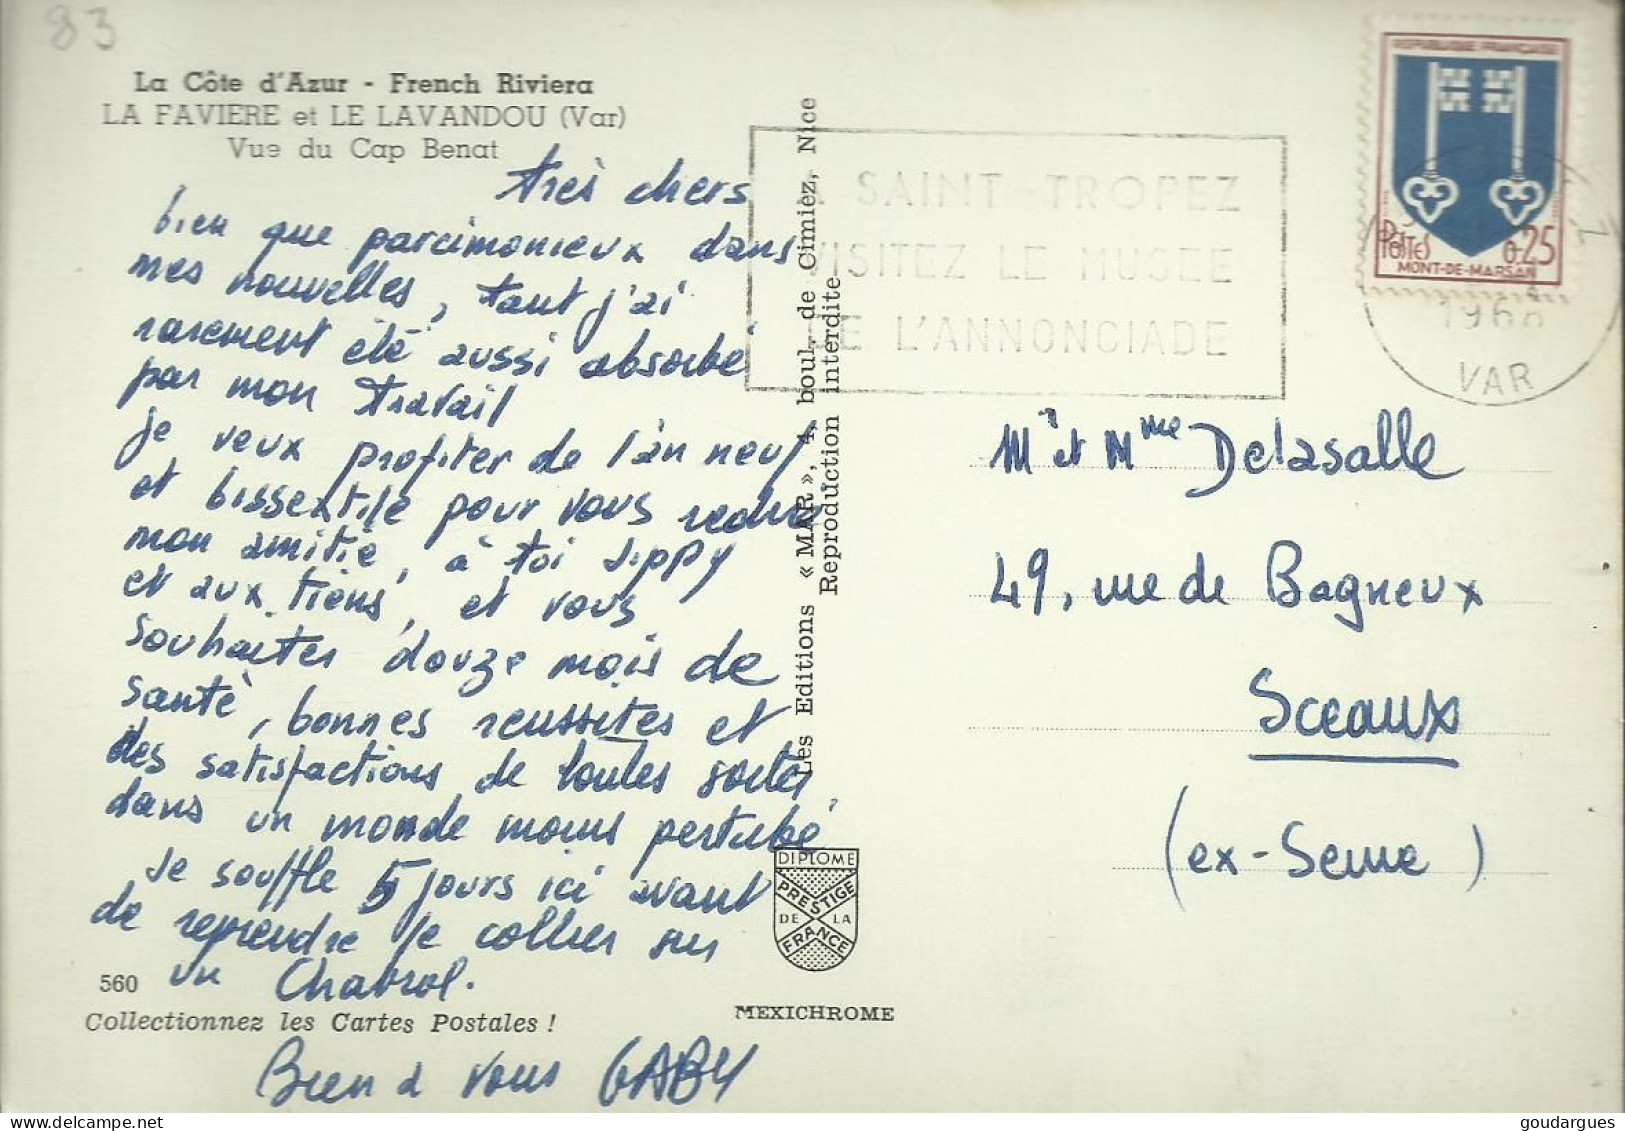 83
La Côte d'Azur - French Riviera
LA FAVIERE et LE LAVANDOU (Var)
Vue du Cap Benat
très chers
bien que parcimonieux dans
mes nouvelles, tant j'ai
rarement été aussi absorbé
par mon travail
je veux profiter de l'an neuf
et bissextile pour vous redire
mon amitié, à toi
et aux tiens, et vous
souhaiter douze mois de
santé, bonnes reussites et
des satisfactions de toutes sortes,
dans un monde moins pertubé
Je souffle 5 jours ici avant
de reprendre le collier sur
un Chabrol.
560
Collectionnez les Cartes Postales !
Bien à vous GABY
Les Editions « MAR », 4, boul. de Cimiez, Nice
Reproduction interdite
DIPLOME
PRESTIGE
DE LA
FRANCE
MEXICHROME
SAINT-TROPEZ
VISITEZ LE MUSEE
DE L'ANNONCIADE
REPUBLIQUE FRANCAISE
POSTES
0,25
MONT-DE-MARSAN
1968
VAR
Mr et Mme Delasalle
49, rue de Bagneux
Sceaux
(ex-Seine)
goudargues